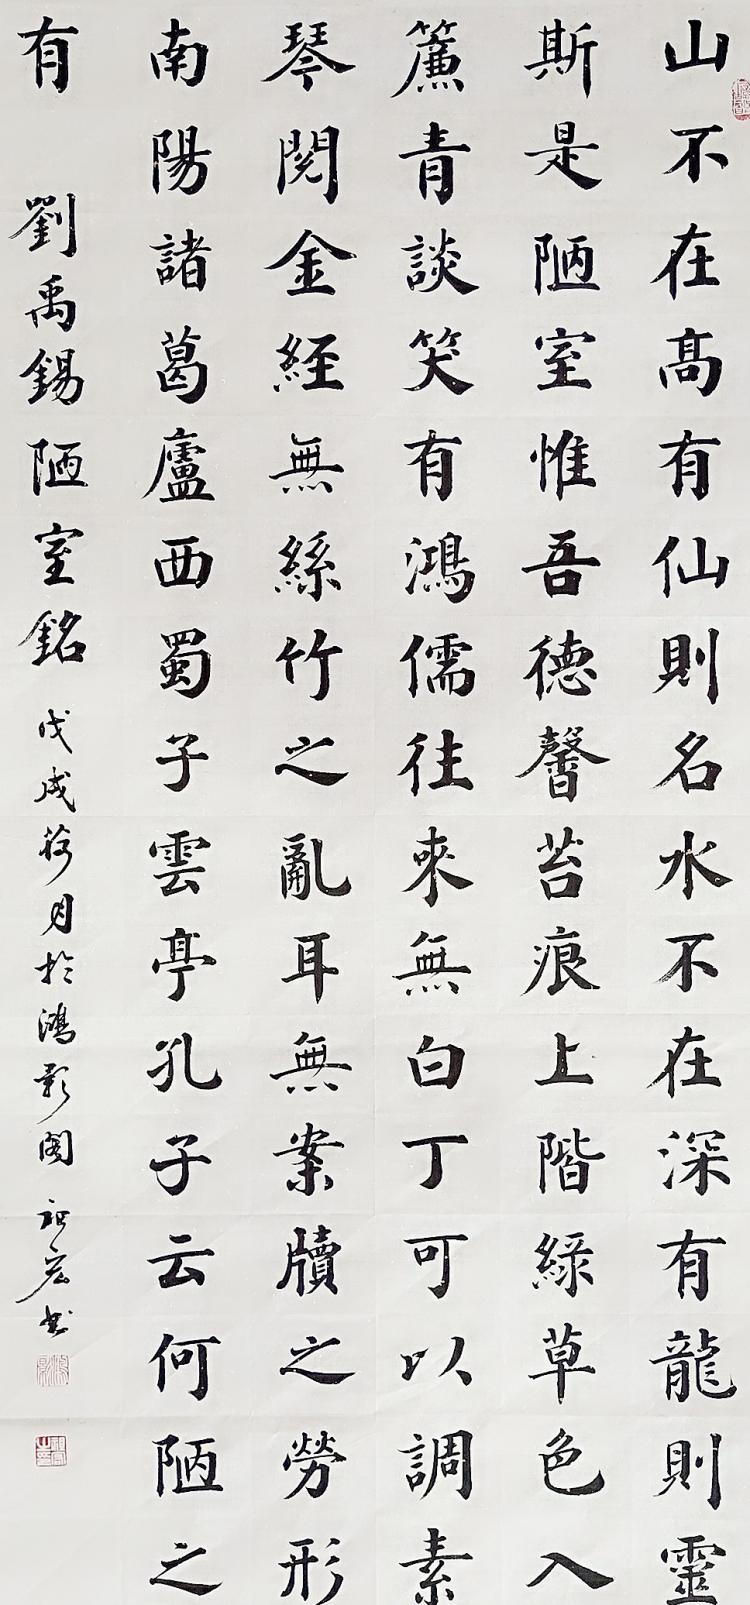 山不在高有仙則名水不在深有龍則靈
斯是陋室惟吾德馨苔痕上階綠草色入
簾青談笑有鴻儒往來無白丁可以調素
琴閱金經無絲竹之亂耳無案牘之勞形
南陽諸葛廬西蜀子雲亭孔子云何陋之
有 劉禹錫陋室銘 戊戌荷月於鴻影閣 宏書